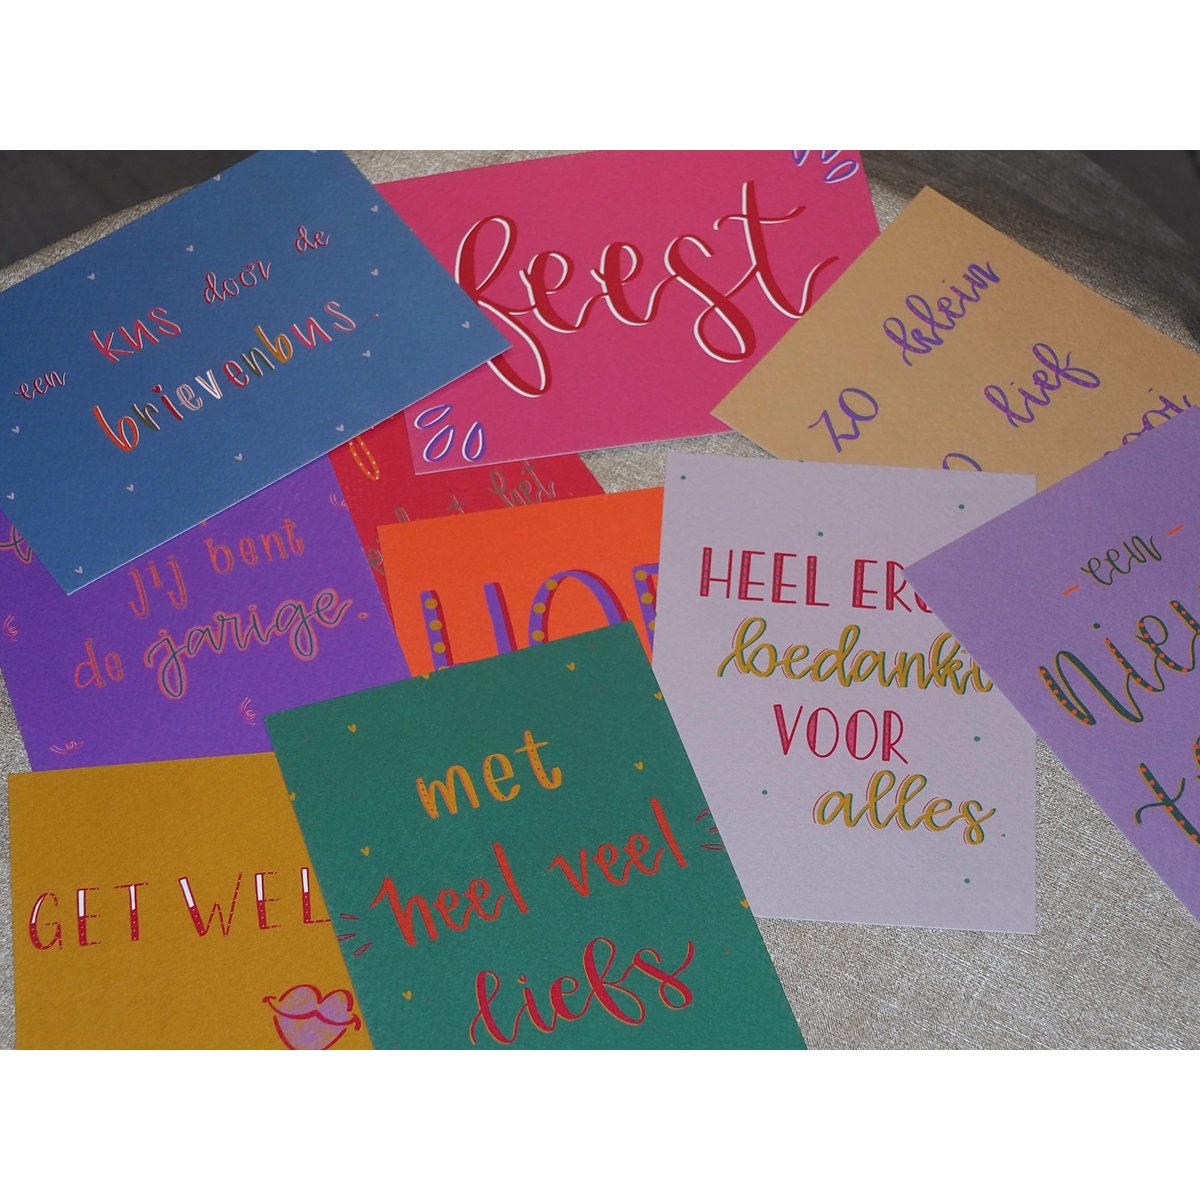 een kus door de
brievenbus.
feest
zo klein
zo lief
jij bent
de jarige.
het
HEEL ERG
bedankt
VOOR
alles.
een
GET WEL
met
heel veel
liefs